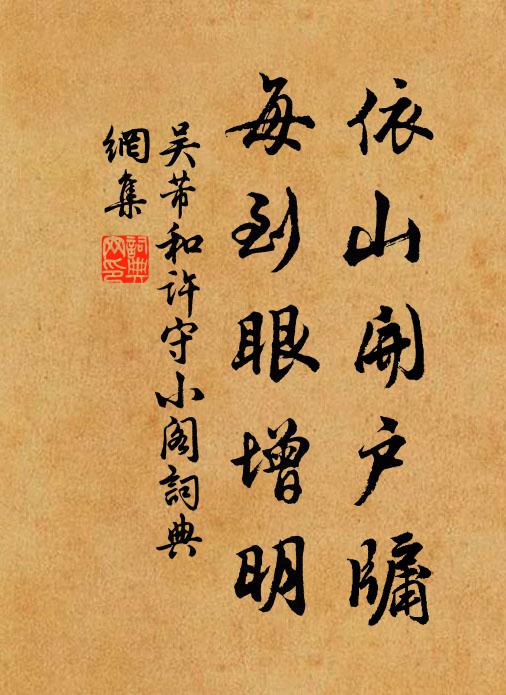 依山開户牖
每到眼增明
吴芾和許守小阁詞典
網集
詞典
网印